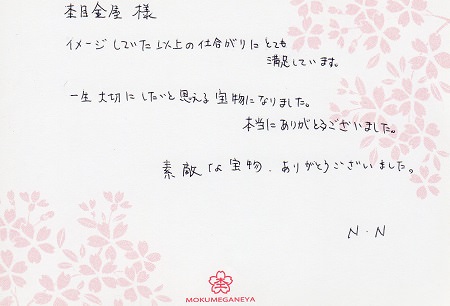 杢目金屋 様
イメージしていた以上の仕上がりにとても
満足しています。
一生大切にしたいと思える宝物になりました。
本当にありがとうございました。
素敵な宝物、ありがとうございました。
N.N
MOKUMEGANEYA